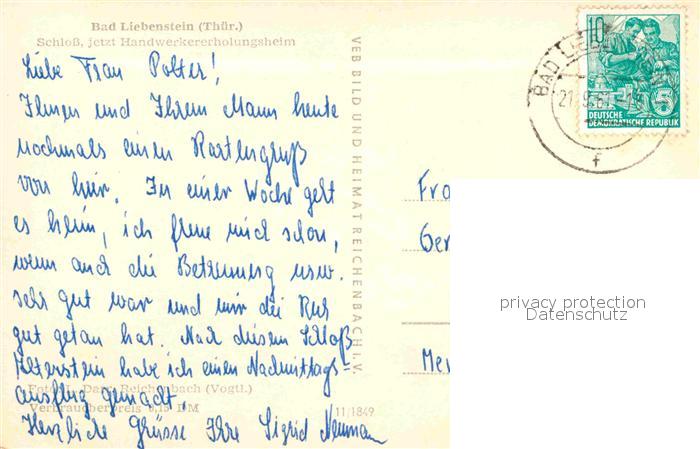 Bad Liebenstein (Thür.)
Schloß, jetzt Handwerkererholungsheim
Liebe Frau Polter!
Ihnen und Ihrem Mann heute
nochmals einen Kartengruß
von hier. In einer Woche geht
es heim, ich freue mich schon,
wenn auch die Betreuung usw.
sehr gut war und mir die Ruh
gut getan hat. Nach diesem Schloß
Altenstein habe ich einen Nachmittags=
ausflug gemacht.
Herzliche Grüsse Ihre Sigrid Neumann
Reichenbach (Vogtl.)
Verbraucherpreis 0,15 DM
11/1849
VEB BILD UND HEIMAT REICHENBACH i. V.
Fra
Ger
Mer
10
5
DEUTSCHE
DEMOKRATISCHE REPUBLIK
BAD LIEBE
21.9.61
f
privacy protection
Datenschutz